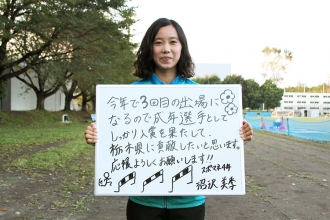 今年で3回目の出場に
なるので成年選手として
しっかり入賞を果たして、
栃木県に貢献したいと思います。
応援よろしくお願いします!!
スポマネ4年
沼沢 美季